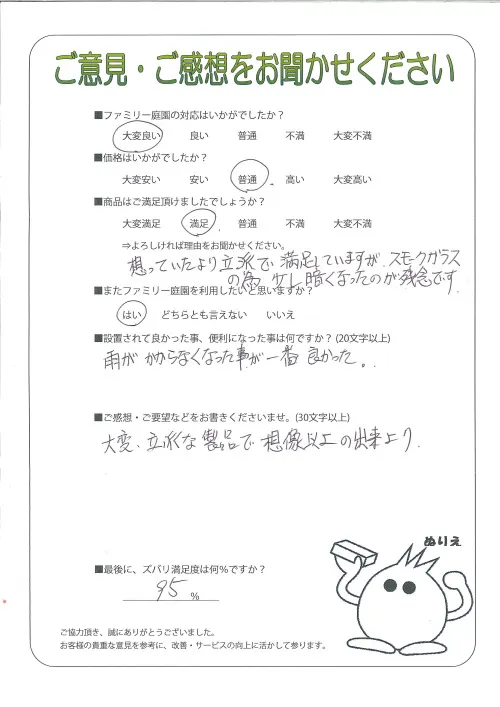 ご意見・ご感想をお聞かせください
■ファミリー庭園の対応はいかがでしたか？
大変良い 良い 普通 不満 大変不満
■価格はいかがでしたか？
大変安い 安い 普通 高い 大変高い
■商品はご満足頂けましたでしょうか？
大変満足 満足 普通 不満 大変不満
⇒よろしければ理由をお聞かせください。
想っていたより立派で満足していますが、スモークガラス
の為 少し暗くなったのが残念です
■またファミリー庭園を利用したいと思いますか？
はい どちらとも言えない いいえ
■設置されて良かった事、便利になった事は何ですか？(20文字以上)
雨がかからなくなった事が一番良かった。
■ご感想・ご要望などをお書きくださいませ。(30文字以上)
大変、立派な製品で想像以上の出来より
ぬりえ
■最後に、ズバリ満足度は何％ですか？
95 %
ご協力頂き、誠にありがとうございました。
お客様の貴重な意見を参考に、改善・サービスの向上に活かして参ります。